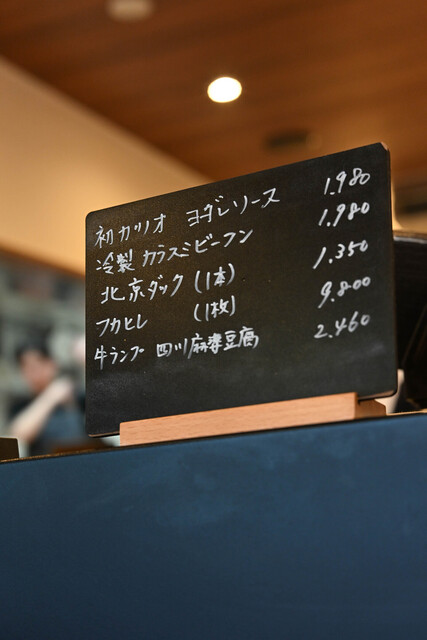 初カツオ ヨダレソース 1.980
冷製カラスミビーフン 1,980
北京ダック(1本) 1,350
フカヒレ (1枚) 9.800
牛ランプ 四川麻婆豆腐 2.460